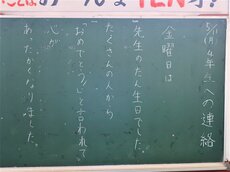 4年生への連絡
金曜日は
先生のたん生日でした。
たくさんの人から
「おめでとう」と言われて
心が
あったかくなりました。